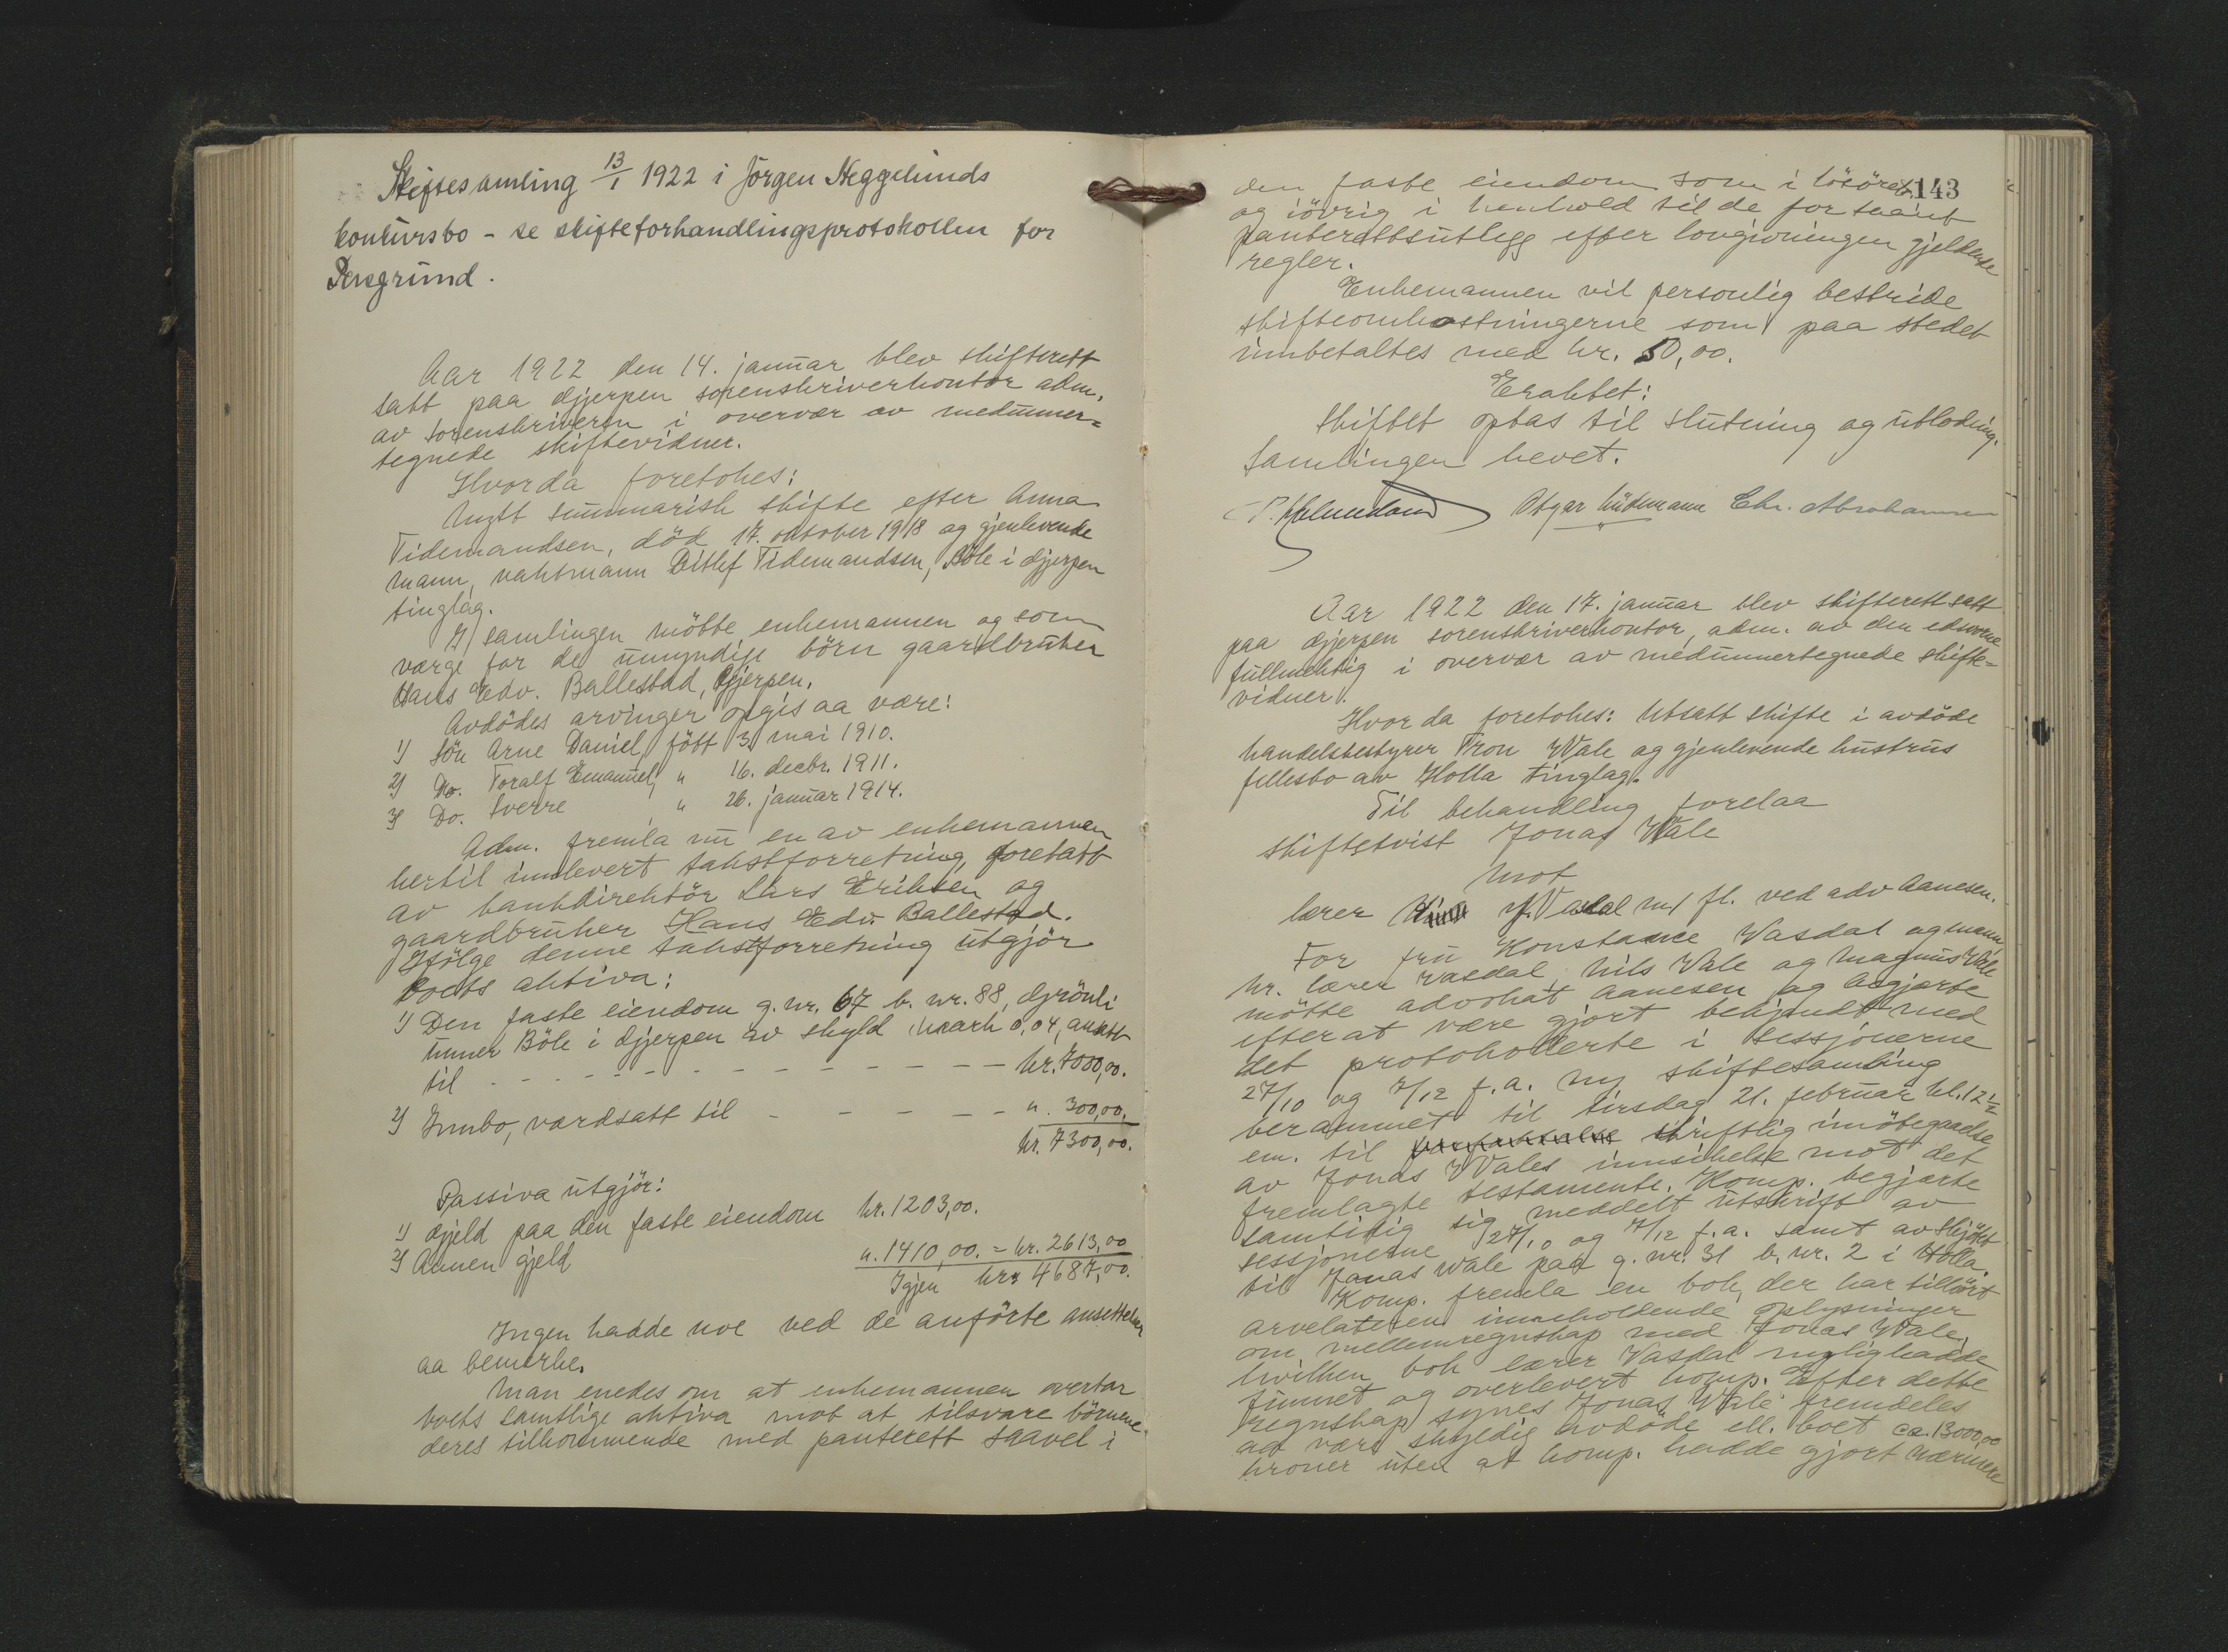 Skiftesamling 13/1 1922 i Jørgen Heggelunds
konkursbo - se skifteforhandlingsprotokollen for
Porsgrund.
Aar 1922 den 14. januar blev skifterett
satt paa Gjerpen sorenskriverkontor adm.
av sorenskriveren i overvær av medunner=
tegnede skiftevidner.
Hvorda foretokes:
Nytt summarisk skifte efter Anna
Tidemandsen, død 17. oktober 1918 og gjenlevende
mann, vaktmann Ditlef Tidemandsen, Böle i Gjerpen
tinglag.
I samlingen møtte enkemannen og som
værge for de umyndige børn gaardbruker
Hans Edv. Ballestad, Gjerpen.
Avdødes arvinger opgis aa være:
1) Søn Arne Daniel, født 3. mai 1910.
2) Do. Toralf Emanuel, " 16. decbr. 1911.
3) Do. Sverre " 26. januar 1914.
Adm. fremla nu en av enkemannen
hertil innlevert takstforretning, foretatt
av bankdirektør Lars Eriksen og
gaardbruker Hans Edv. Ballestad.
Ifølge denne takstforretning utgjør
boets aktiva:
1) Den faste eiendom g. nr. 67 b. nr. 88, Grönli
unner Böle i Gjerpen av skyld mark 0,04, ansatt
til - - - - - - - - - - kr. 7000,00.
2) Innbo, værdsatt til - - - - - " 300,00.
kr. 7300,00.
Passiva utgjør:
1) Gjeld paa den faste eiendom kr. 1203,00.
2) Annen gjeld " 1410,00. = kr. 2613,00
Igjen kr. 4687,00.
Ingen hadde noe ved de anførte ansettelser
aa bemerke.
Man enedes om at enkemannen overtar
boets samtlige aktiva mot at tilsvare børnene
deres tilkommende med panterett saavel i
143
den faste eiendom som i løsøret
og iøvrig i henhold til de for saant
panterettsutlegg efter lovgivningen gjeldende
regler.
Enkemannen vil personlig bestride
skifteomkostningerne som paa stedet
innbetaltes med kr. 50,00.
Eraktet:
Skiftet optas til slutning og utlodning.
Samlingen hevet.
Chr. Abrahamsen
Aar 1922 den 17. januar blev skifterett satt
paa Gjerpen sorenskriverkontor, adm. av den edsvorne
fullmektig i overvær av medunnertegnede skifte=
vidner.
Hvor da foretokes: Utsatt skifte i avdøde
handelsbestyrer Tron Wale og gjenlevende hustrus
fellesbo av Holla tinglag.
Til behandling forelaa
skiftetvist Jonas Wale
mot
lærer Vasdal m/ fl. ved adv Aanesen.
For fru Konstance Vasdal og mann
hr. lærer Vasdal, Nils Wale og Magnus Wale
møtte advokat Aanesen og begjærte
efterat være gjort bekjendt med
det protokollerte i sessjonerne
27/10 og 7/12 f.a. ny skiftesamling
berammet til tirsdag 21. februar kl. 12 1/2
em. til skriftlig imøtegaaelse
av Jonas Wales innsigelse mot det
fremlagte testamente. Komp. begjærte
samtidig sig meddelt utskrift av
sessjonerne 27/10 og 7/12 f.a. samt av skjøtet
til Jonas Wale paa g. nr. 31 b. nr. 2 i Holla.
Komp. fremla en bok, der har tilhørt
arvelateren inneholdende oplysninger
om mellemregnskap med Jonas Wale,
hvilken bok lærer Vasdal nylig hadde
funnet og overlevert komp. Efter dette
regnskap synes Jonas Wale fremdeles
aa være skyldig avdøde ell. boet ca. 13000,00
kroner uten at komp. hadde gjort nærmere